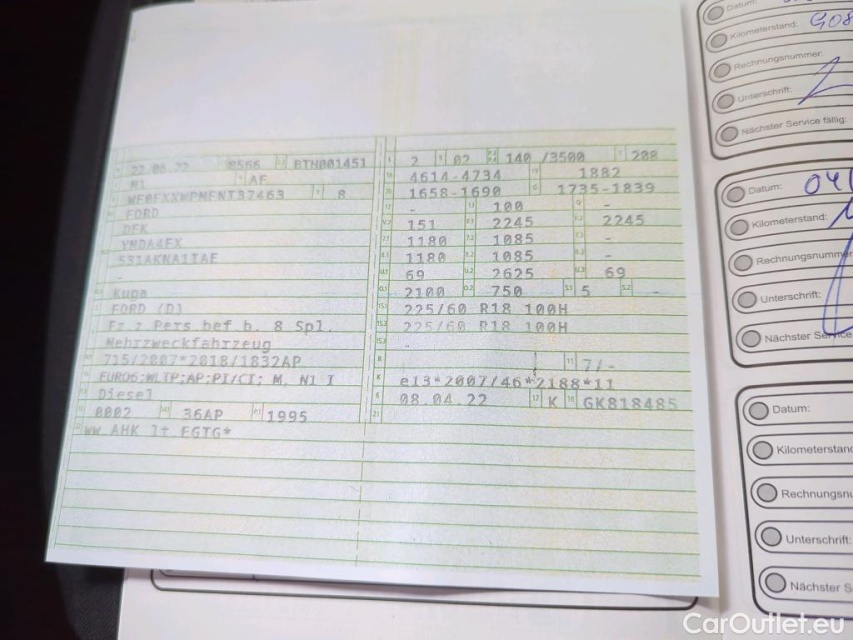 22.06.22 8566 BTN001451
M1 AF
WF0FXXWPMFNT37463 8
FORD
DFK
YMDA4FX
531AKNA1TAF
-
Kuga
FORD (D)
Fz.z.Pers.bef.b. 8 Spl.
Mehrzweckfahrzeug
715/2007*2018/1832AP
EURO6;WLTP;AP;PI/CI; M, N1 I
Diesel
0002 36AP 1995
WW AHK lt EGTG*
2 02 140 /3500 208
4614-4734 1882
1658-1690 1735-1839
- 100 -
151 2245 2245
1180 1085 -
1180 1085 -
69 2625 69
2100 750 5 -
225/60 R18 100H
225/60 R18 100H
-
7/-
e13*2007/46*2188*11
08.04.22 K GK818485
Datum:
Kilometerstand: 908
Rechnungsnummer:
Unterschrift:
Nächster Service fällig:
Datum: 04
Kilometerstand:
Rechnungsnumm
Unterschrift:
Nächster Servic
Datum:
Kilometerstan
Rechnungsnu
Unterschrift:
Nächster S
CarOutlet.eu